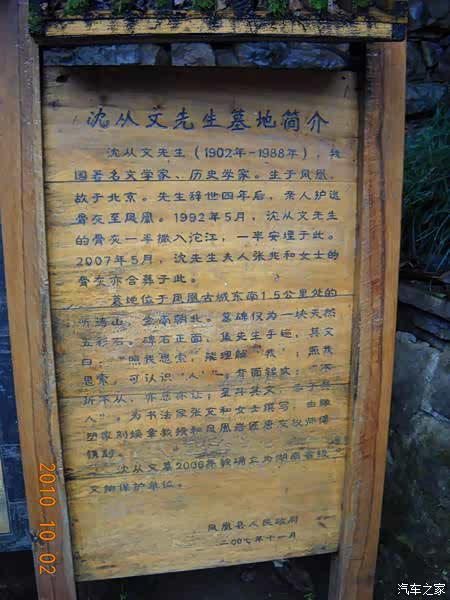 沈从文先生墓地简介
沈从文先生（1902年-1988年），我
国著名文学家、历史学家。生于凤凰，
故于北京。先生辞世四年后，亲人护送
骨灰至凤凰。1992年5月，沈从文先生
的骨灰一半撒入沱江，一半安埋于此。
2007年5月，沈先生夫人张兆和女士的
骨灰亦合葬于此。
墓地位于凤凰古城东南1.5公里处的
听涛山，坐南朝北。墓碑仅为一块天然
五彩石。碑石正面，集先生手迹，其文
曰："照我思索，能理解'我'；照我
思索，可认识'人'"。背面铭文："不
折不从，亦慈亦让；星斗其文，赤子其
人"，为书法家张充和女士撰写，由雕
塑家刘焕章教授和凤凰
镌刻。
沈从文墓2006年被确立为湖南省级
文物保护单位。
凤凰县人民政府
二00七年十一月
2010 10 02
汽车之家